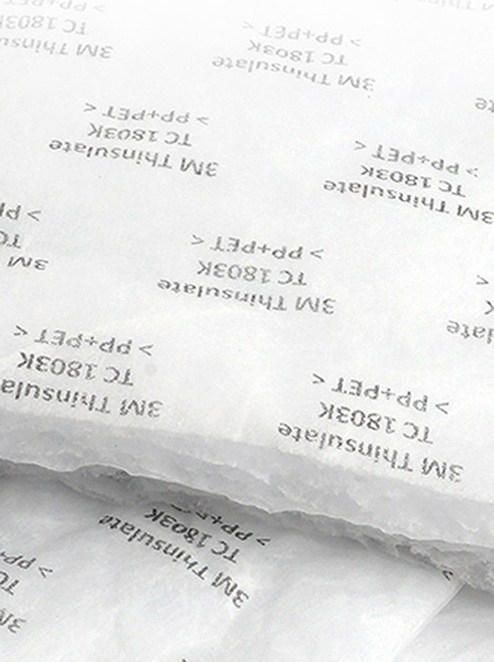 3M Thinsulate
TC 1803K
> PP+PET <
3M Thinsulate
TC 1803K
> PP+PET <
3M Thinsulate
TC 1803K
> PP+PET <
3M Thinsulate
TC 1803K
> PP+PET <
3M Thinsulate
TC 1803K
> PP+PET <
3M Thinsulate
TC 1803K
> PP+PET <
3M Thinsulate
TC 1803K
> PP+PET <